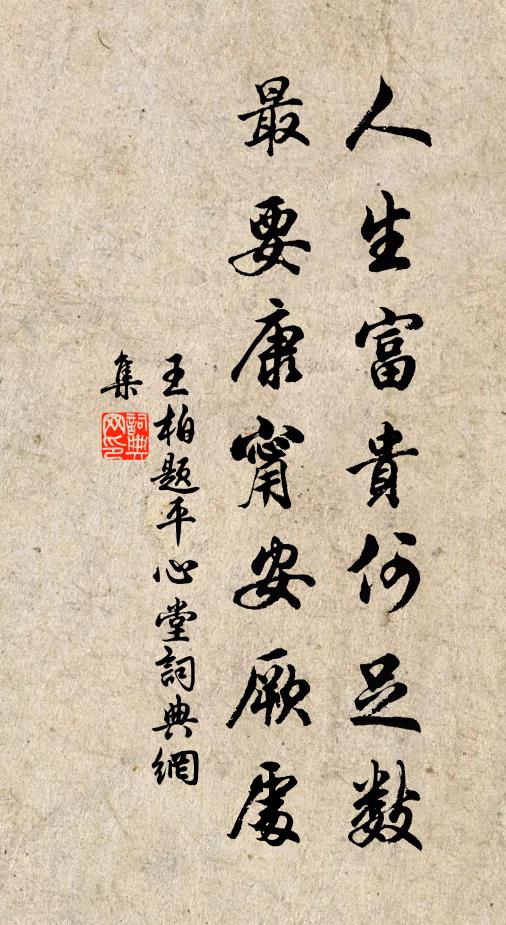 人生富貴何足數
最要康甯安厥處
王柏題平心堂詞典網
集
詞典网印